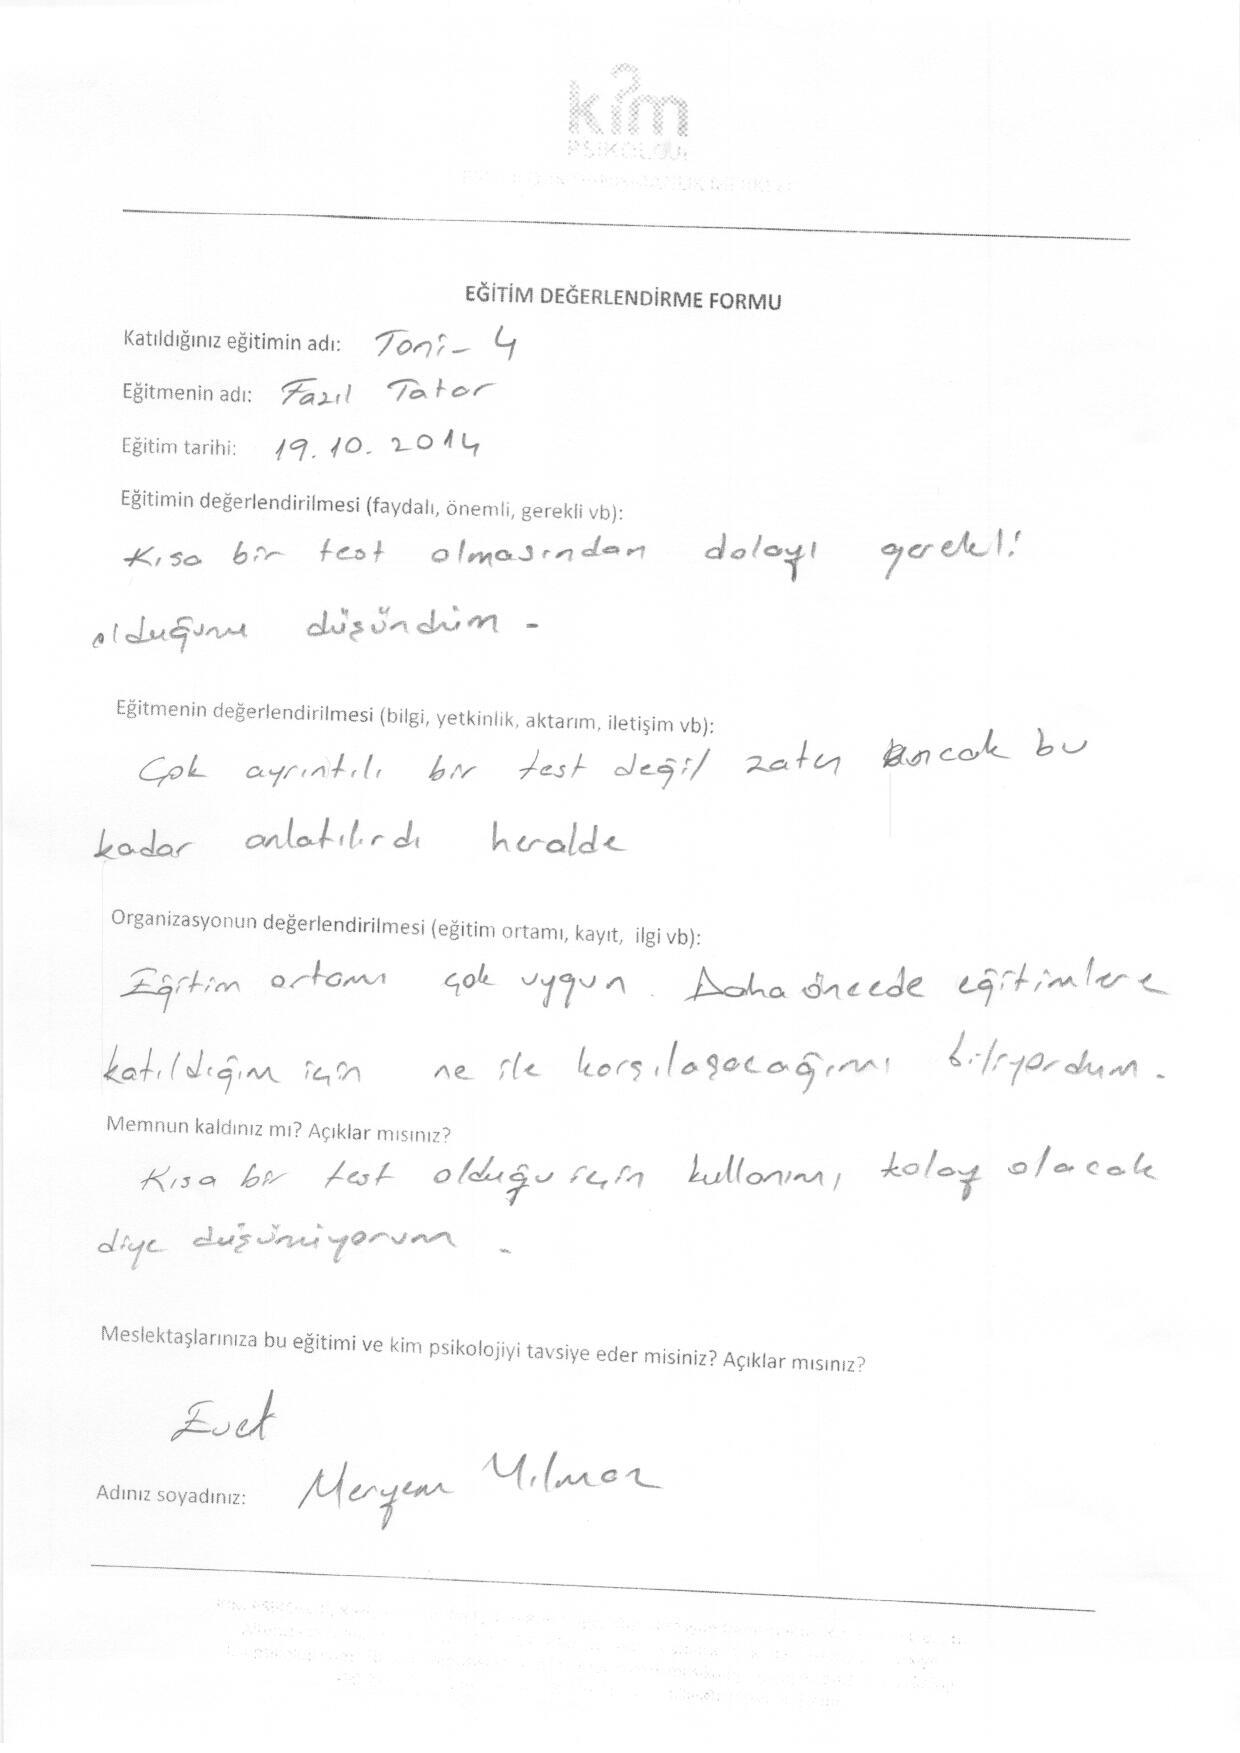 kim
PSİKOLOJİ
EĞİTİM DEĞERLENDİRME FORMU
Katıldığınız eğitimin adı: Toni-4
Eğitmenin adı: Fazıl Tatar
Eğitim tarihi: 19.10.2014
Eğitimin değerlendirilmesi (faydalı, önemli, gerekli vb):
Kısa bir test olmasından dolayı gerekli
olduğunu düşündüm.
Eğitmenin değerlendirilmesi (bilgi, yetkinlik, aktarım, iletişim vb):
Çok ayrıntılı bir test değil zaten ancak bu
kadar anlatılırdı heralde
Organizasyonun değerlendirilmesi (eğitim ortamı, kayıt, ilgi vb):
Eğitim ortamı çok uygun. Daha öncede eğitimlere
katıldığım için ne ile karşılaşacağımı biliyordum.
Memnun kaldınız mı? Açıklar mısınız?
Kısa bir test olduğu için kullanımı kolay olacak
diye düşünüyorum.
Meslektaşlarınıza bu eğitimi ve kim psikolojiyi tavsiye eder misiniz? Açıklar mısınız?
Evet
Adınız soyadınız: Meryem Yılmaz